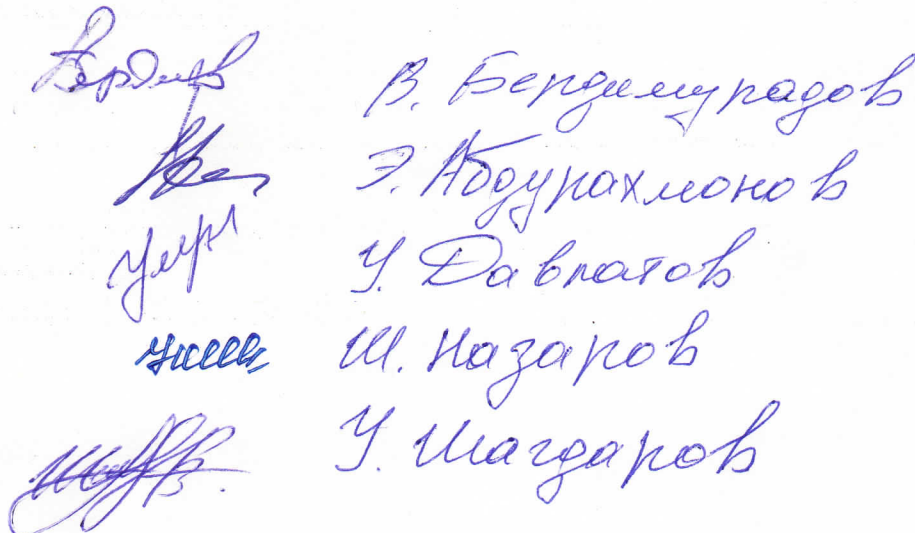 В. Бердимурадов
Э. Абдурахмонов
У. Давлатов
Ш. Назаров
У. Шагдаров